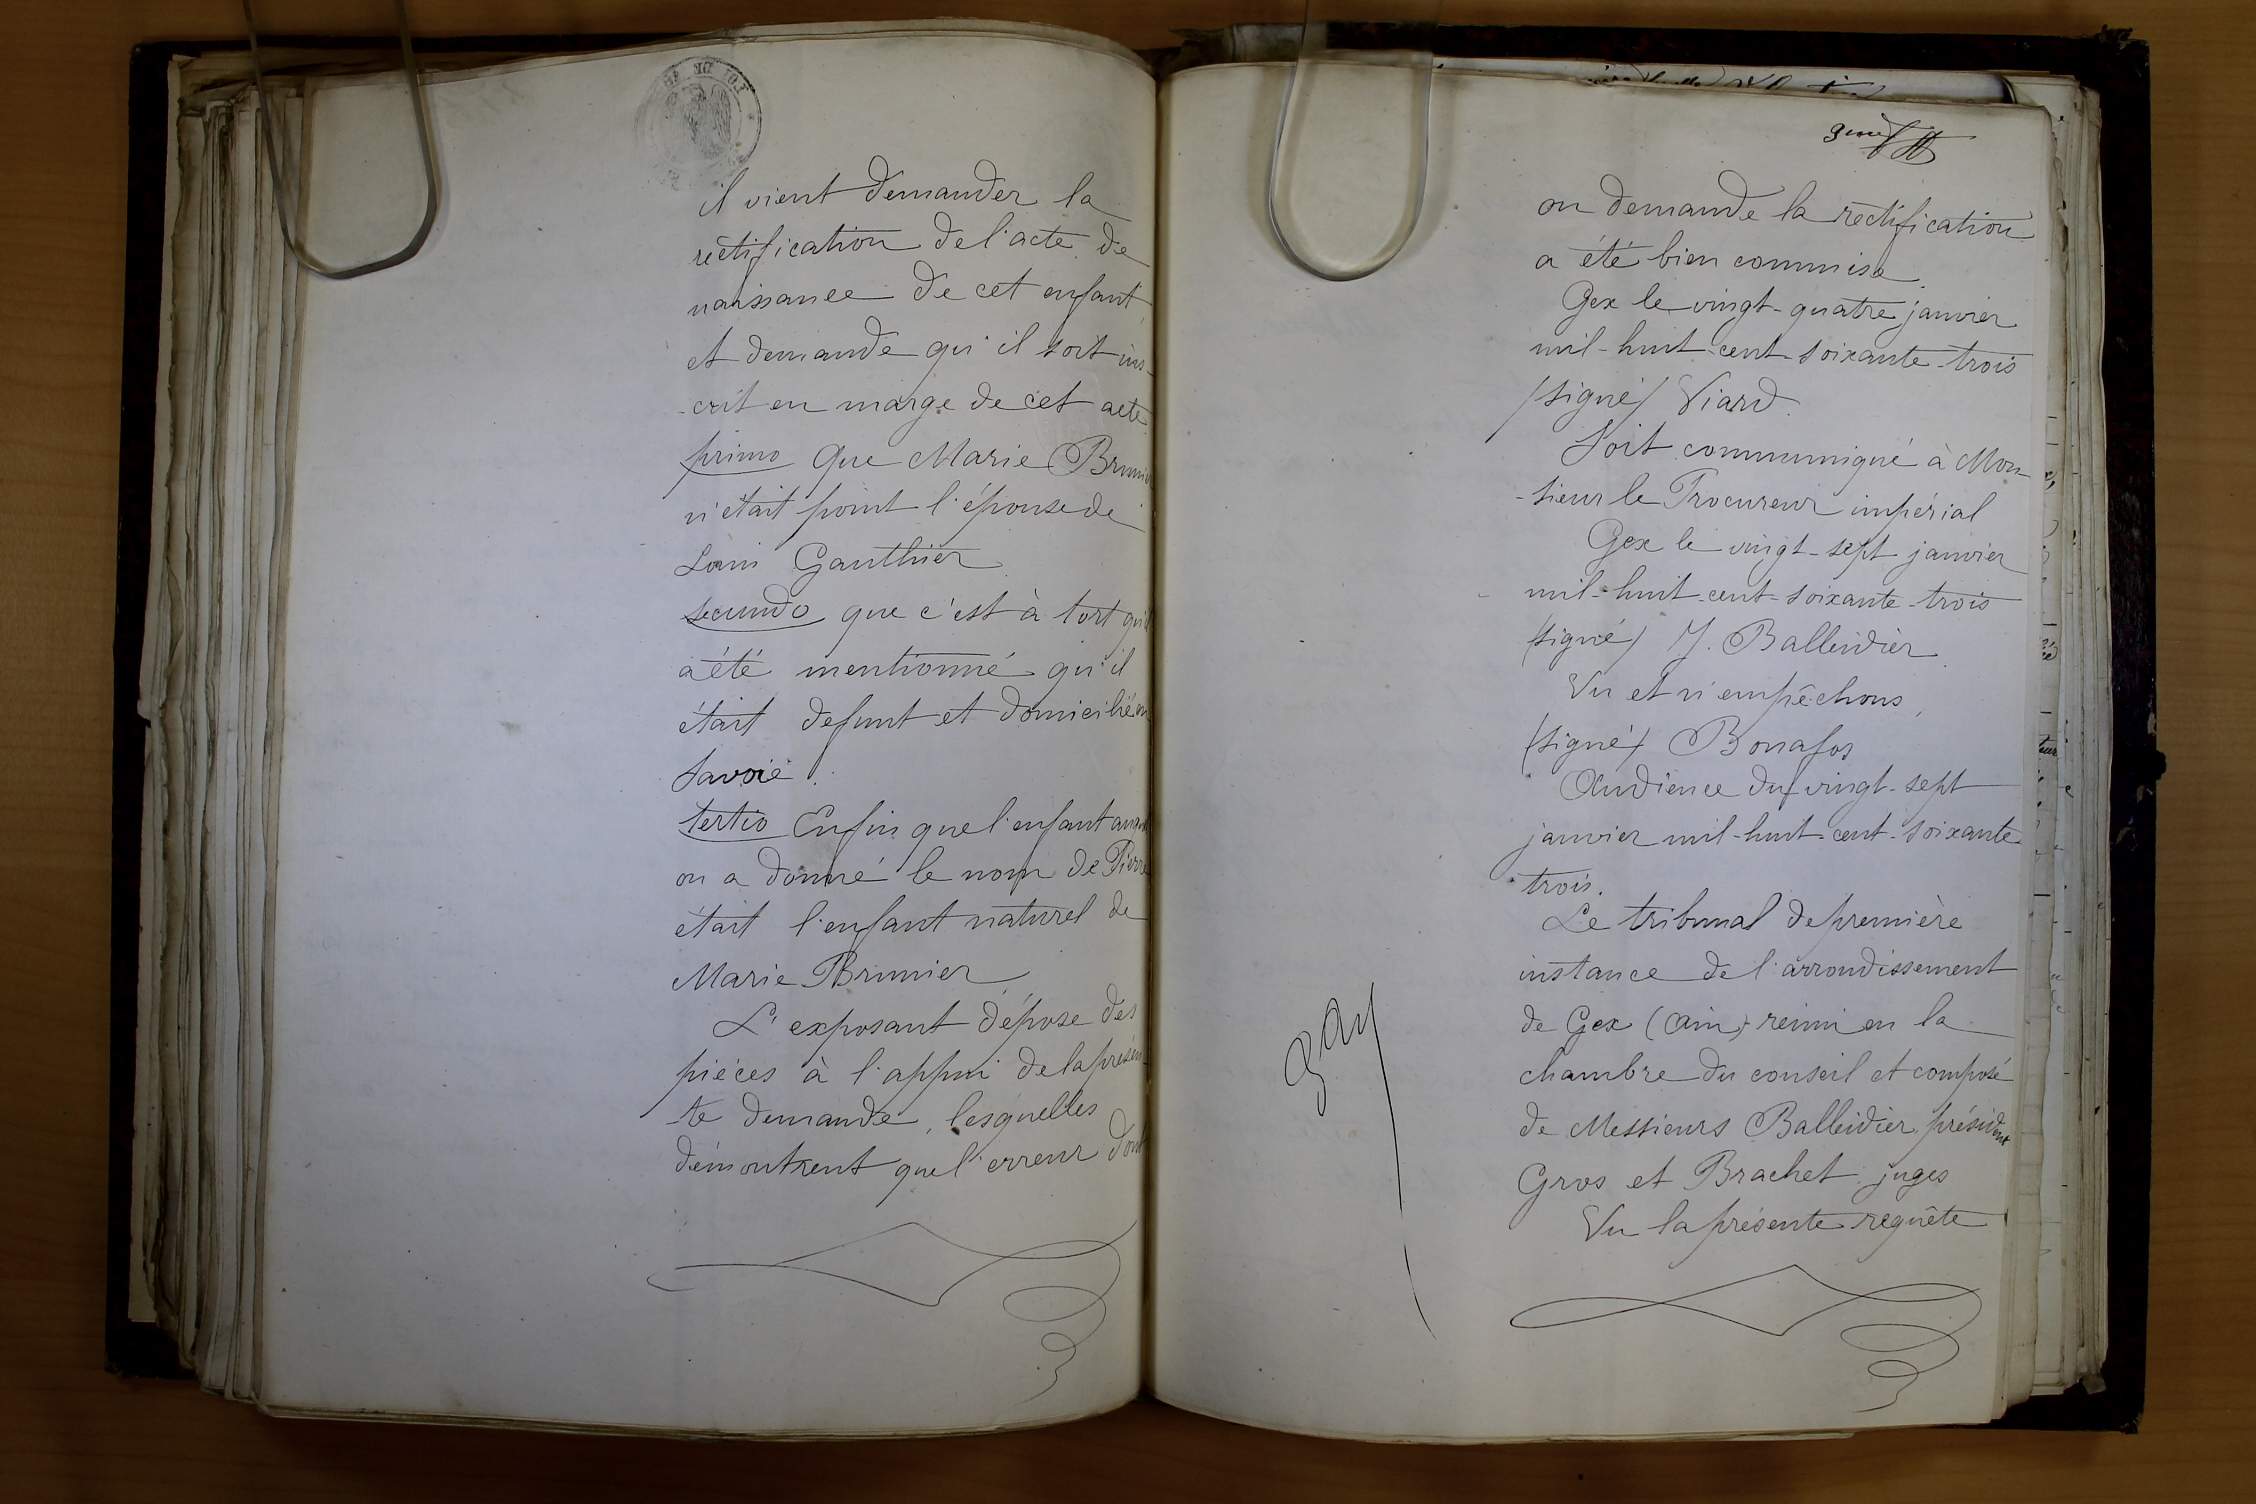 il vient demander la
réctification de l'acte de
naissance de cet enfant
et demande qu'il soit ins-
-crit en marge de cet acte
primo Que Marie Brunier
n'était point l'épouse de
Louis Gauthier
secundo que c'est à tort qu'il
a été mentionné qu'il
était defunt et domicilié en
Savoie.
tertio Enfin que l'enfant auquel
on a donné le nom de Pierre
était l'enfant naturel de
Marie Brunier
L'exposant dépose des
pièces à l'appui de la présen-
-te demande, lesquelles
démontrent que l'erreur dont
3eme
on demande la rectification
a été bien commise.
Gex le vingt-quatre janvier
mil-huit-cent-soixante-trois
(signé) Viard.
Soit communiqué à Mon-
-sieur le Procureur impérial
Gex le vingt-sept janvier
mil-huit-cent-soixante-trois
(signé) J. Balleidier
Vu et n'empêchons,
(signé) Bonafos
Audience du vingt-sept
janvier mil-huit-cent-soixante
trois.
Le tribunal de première
instance de l'arrondissement
de Gex (Ain) réuni en la
chambre du conseil et composé
de Messieurs Balleidier président
Gros et Brachet juges
Vu la présente requête